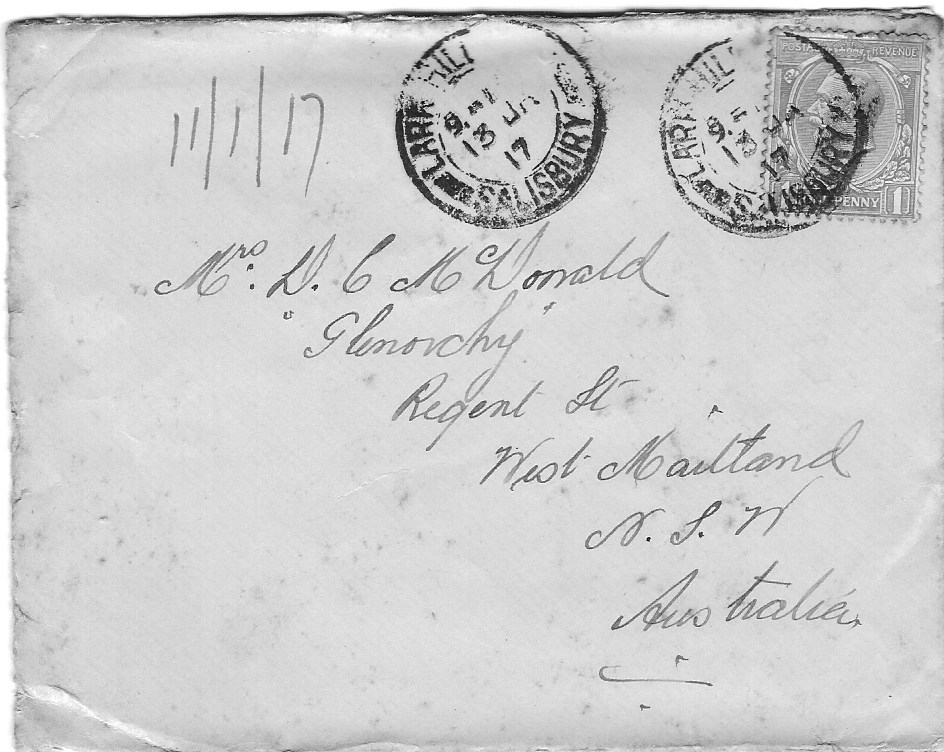 11/1/17
LARK HILL
9
13 JA
17
SALISBURY
LARK HILL
9
13 JA
17
SALISBURY
POSTAGE REVENUE
PENNY 1
Mrs. D. C McDonald
"Glenorchy"
Regent St
West Maitland
N. S. W
Australia